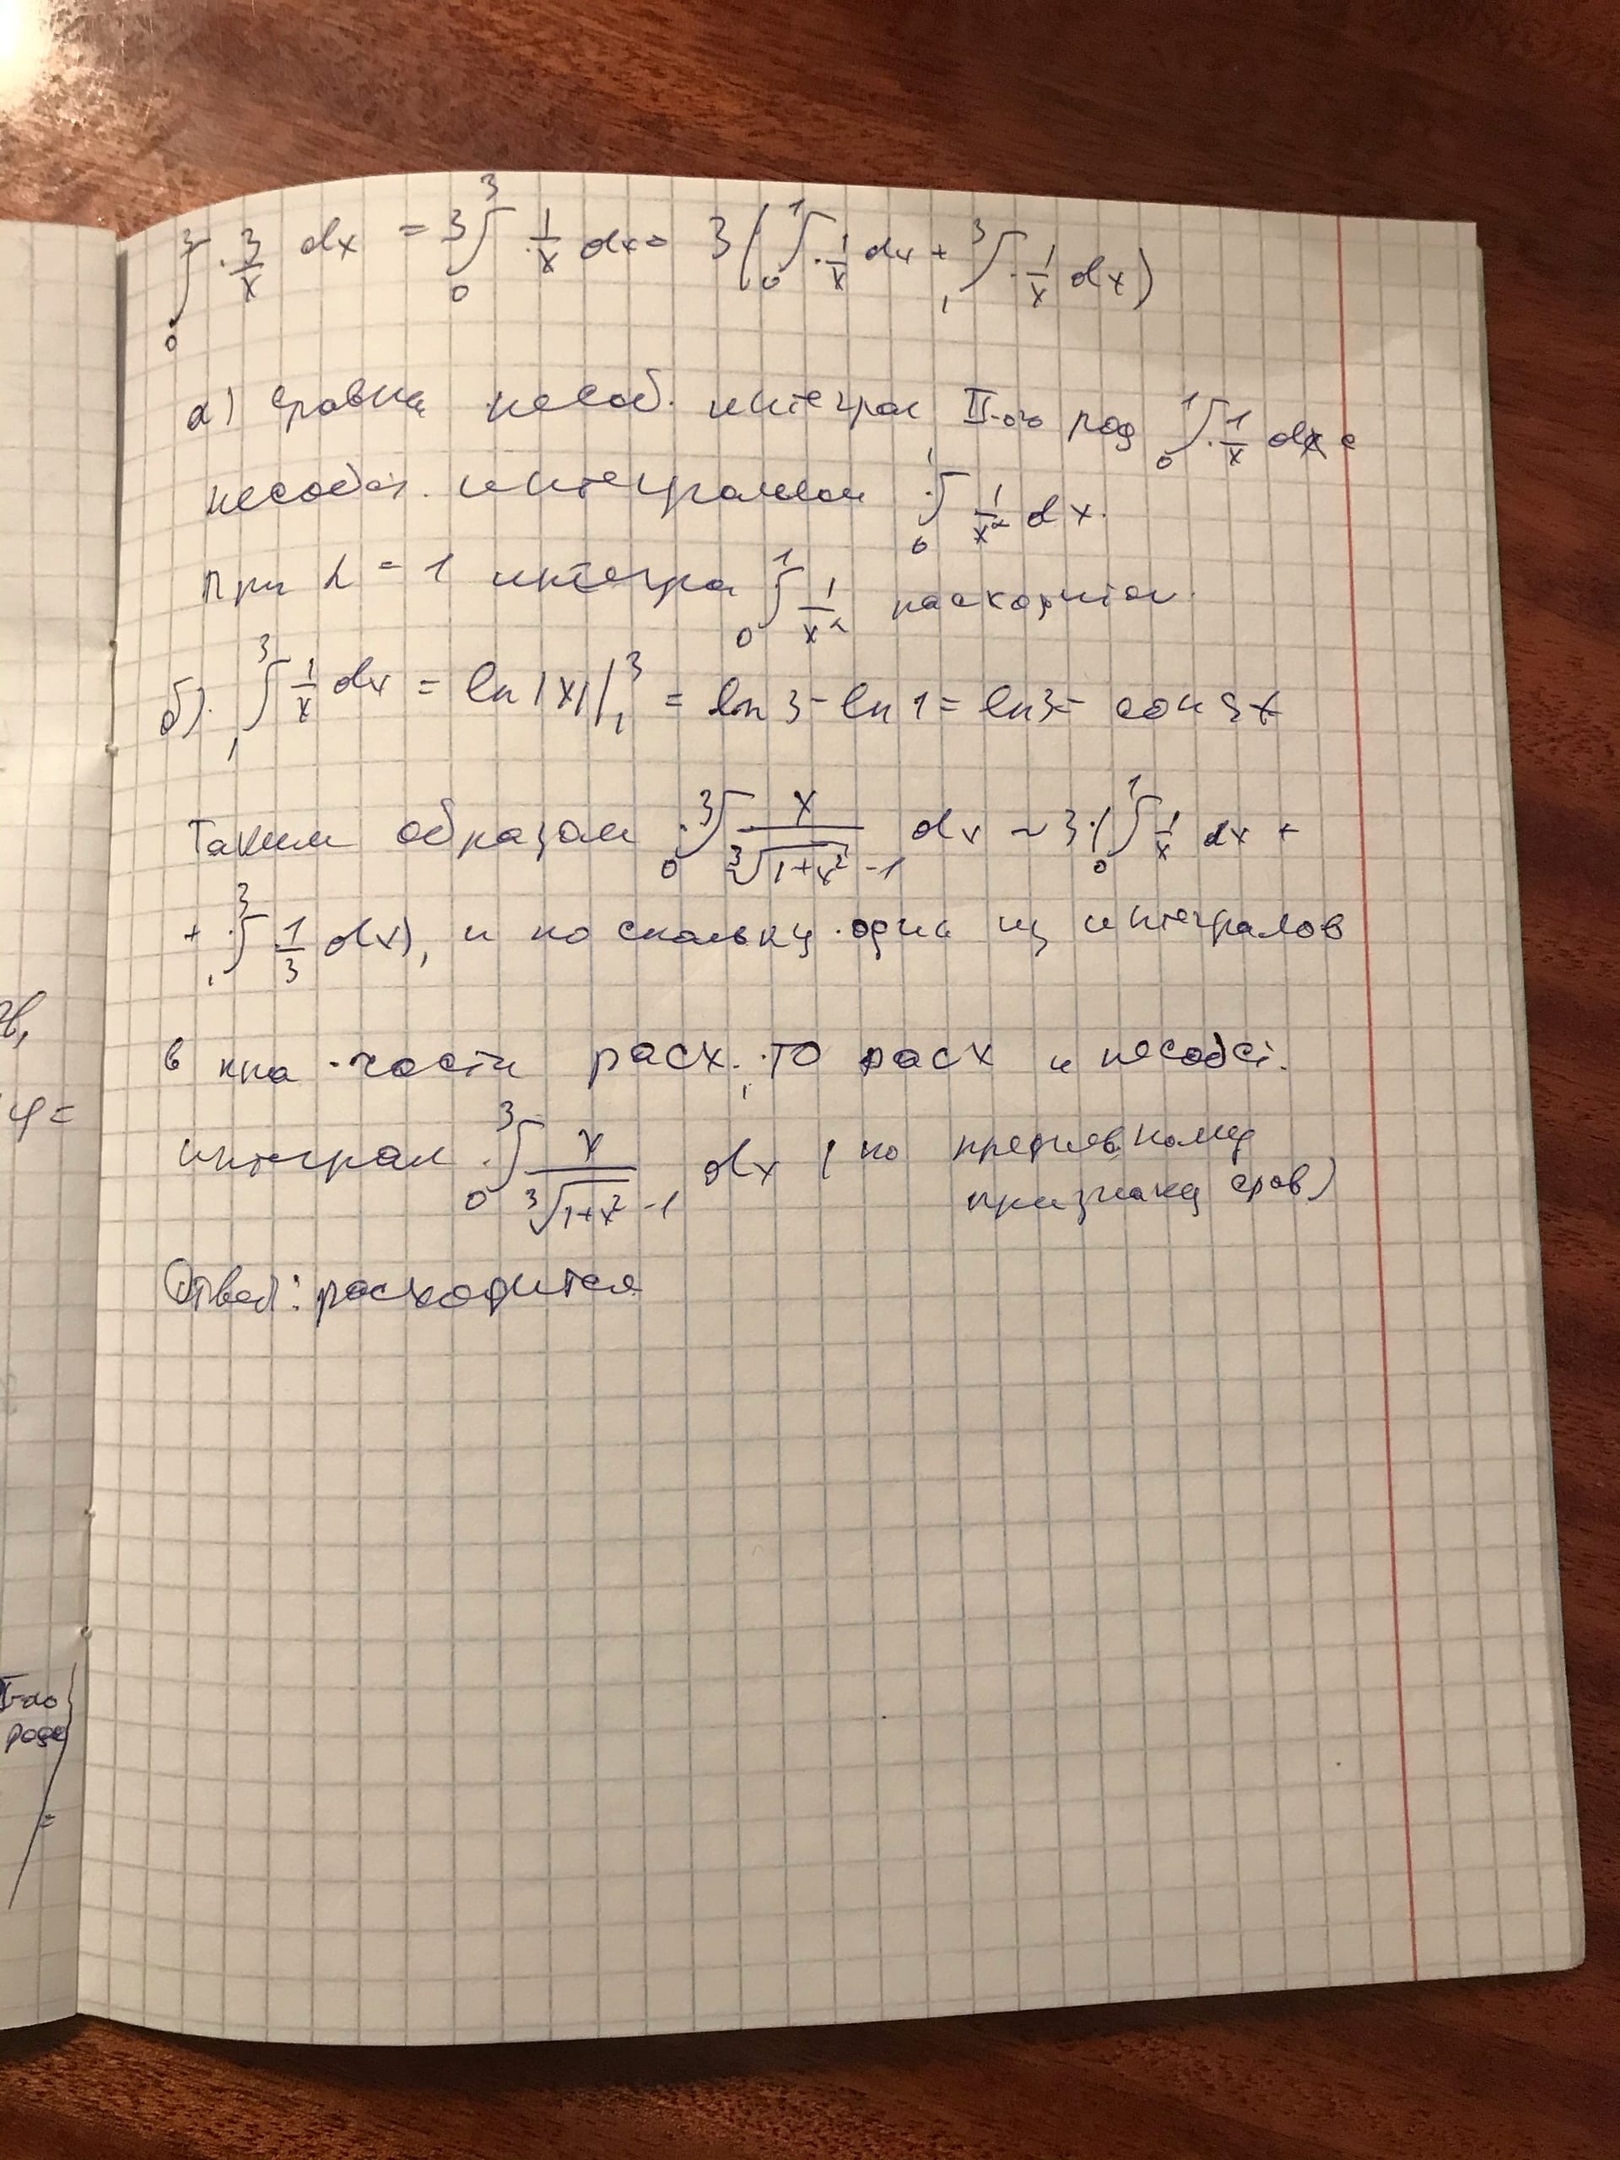 ∫₀³ 3/x dx = 3 ∫₀³ 1/x dx = 3 ( ∫₀¹ 1/x dx + ∫₁³ 1/x dx )
а) Сравни несоб. интеграл II-ого род ∫₀¹ 1/x dx с
несобст. интегралом ∫₀¹ 1/x^α dx.
При α = 1 интегра ∫₀¹ 1/x^α расходится.
б). ∫₁³ 1/x dx = ln |x| |₁³ = ln 3 - ln 1 = ln 3 = const
Таким образом ∫₀³ x/(∛(1+x²) -1) dx ~ 3·( ∫₀¹ 1/x dx +
+ ∫₁³ 1/3 dx), и поскольку один из интегралов
в части расх., то расх и несобст.
интеграл ∫₀³ x/(∛(1+x²) -1) dx ( по предельному
признаку срав)
Ответ: расходится
2в,
φ =
I-го
рода
=